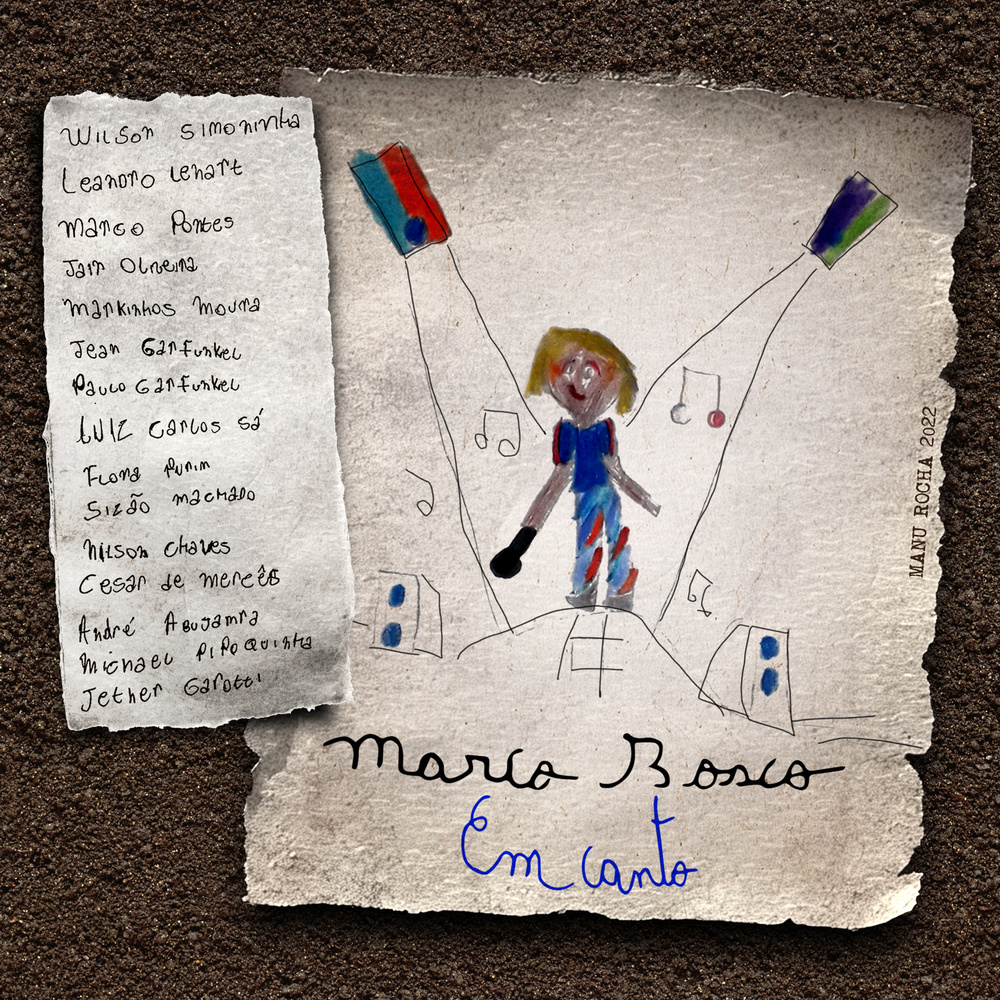 Wilson Simoninha
Leandro Lehart
Marco Pontes
Jair Oliveira
Markinhos Moura
Jean Garfunkel
Paulo Garfunkel
LUIZ Carlos Sá
Flora Purim
Sizão Machado
Nilson Chaves
Cesar de Mercês
André Abujamra
Michael PiPoquinha
Jether Garotti
MANU ROCHA 2022
Marco Bosco
Em canto